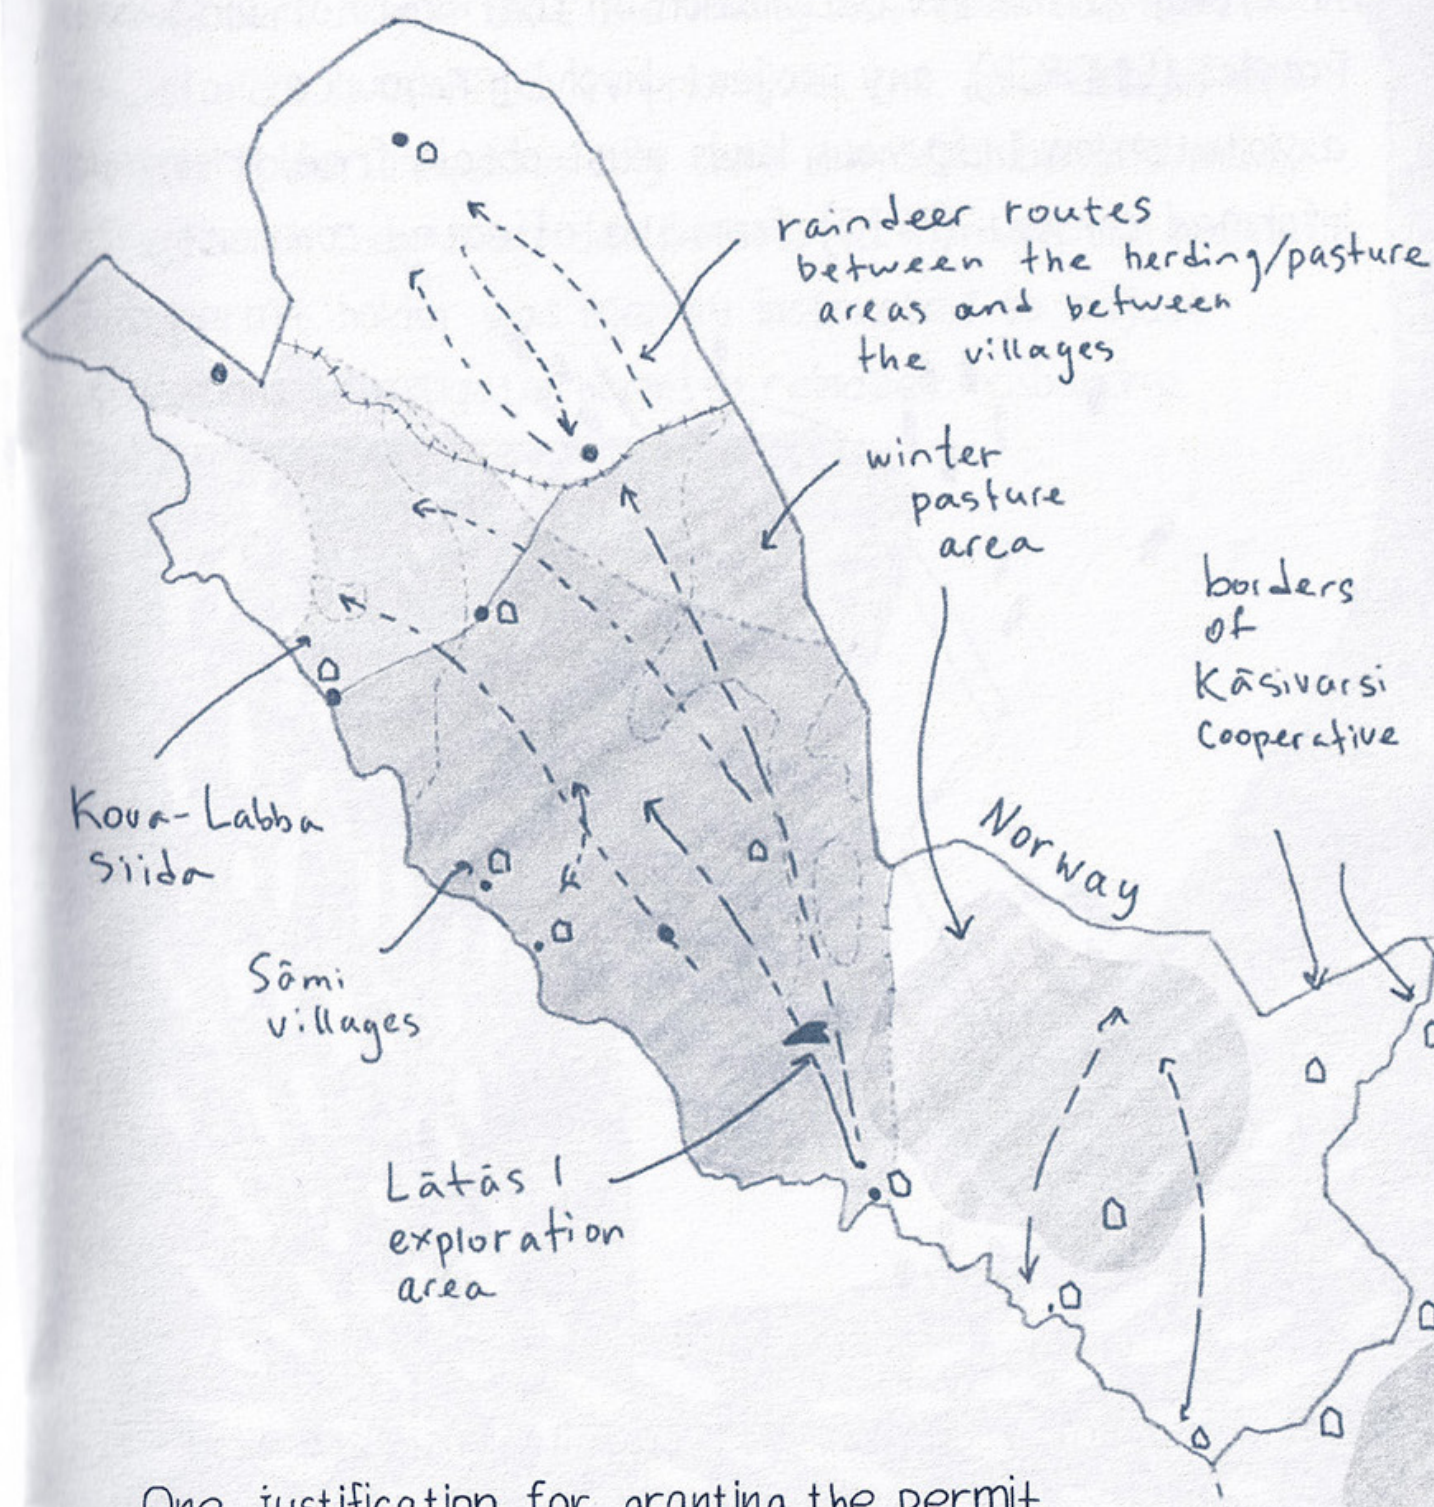 raindeer routes
between the herding/pasture
areas and between
the villages
winter
pasture
area
borders
of
Käsivarsi
Cooperative
Norway
Kova-Labba
Siida
Sámi
villages
Lätäs 1
exploration
area
One justification for granting the permit